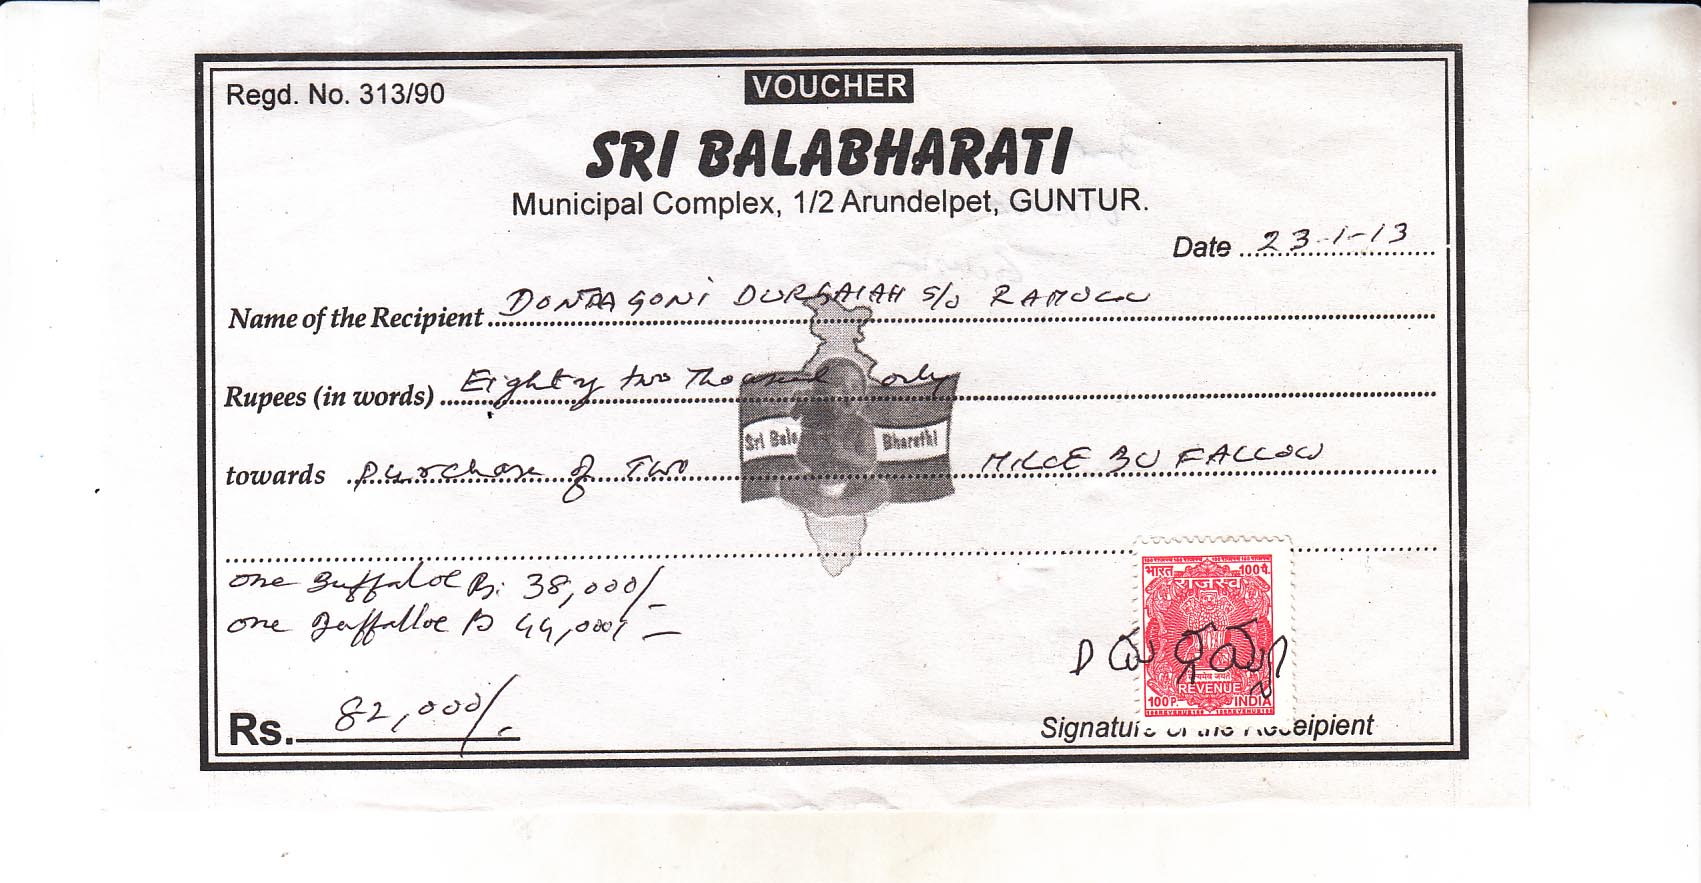 Regd. No. 313/90
VOUCHER
SRI BALABHARATI
Municipal Complex, 1/2 Arundelpet, GUNTUR.
Date 23-1-13
Name of the Recipient DONTAGONI DURGAIAH S/o RAMULU
Rupees (in words) Eighty two Thousand only
Sri Bala Bharathi
towards purchase of TWO MILCE BUFALLOW
one Buffaloe Rs: 38,000/-
one Buffalloe Rs 44,000/-
Rs. 82,000/-
भारत 100 पै.
राजस्व
सत्यमेव जयते
REVENUE
100 P. INDIA
Signature of the Receipient